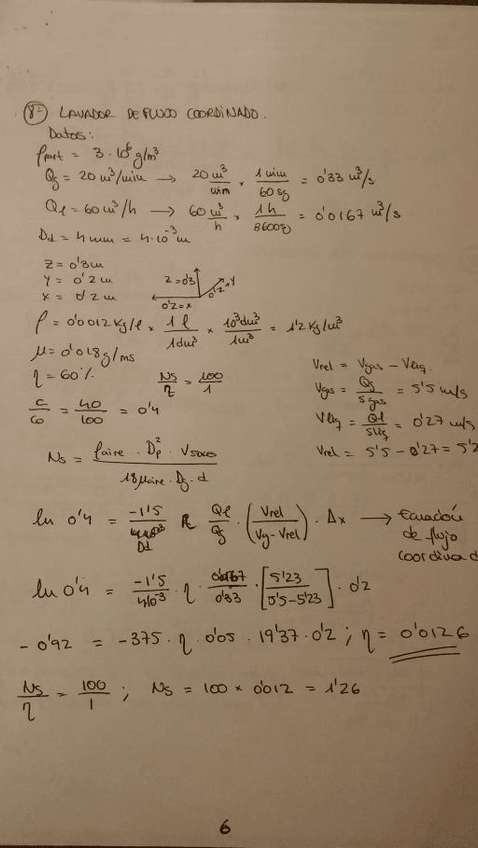 8º LAVADOR DE FLUJO COORDINADO.
Datos:
ρpart = 3·10⁶ g/m³
Qg = 20 m³/min → 20 m³/min × 1 min/60 sg = 0'33 m³/s
Ql = 60 m³/h → 60 m³/h × 1h/3600sg = 0'0167 m³/s
Dd = 4 mm = 4·10⁻³ m
Z = 0'3 m
Y = 0'2 m
X = 0'2 m
Z = 0'3
0'2 = Y
0'2 = x
ρ = 0'0012 Kg/l × 1 l/1dm³ × 10³dm³/1m³ = 1'2 Kg/m³
μ = 0'018 g/ms
η = 60%
Ns/η = 100/1
C/C0 = 40/100 = 0'4
Vrel = Vgas - Vliq.
Vgas = Qg/Sgas = 5'5 m/s
Vliq = Ql/Sliq = 0'27 m/s
Vrel = 5'5 - 0'27 = 5'2
Ns = ρaire · Dp² · V / 18 μaire · Dg · d
ln 0'4 = -1'5/Dd η Ql/Qg · (Vrel/Vg-Vrel) · Δx → Ecuación
de flujo
coordinad
ln 0'4 = -1'5/4·10⁻³ · η · 0'0167/0'33 · [5'23/5'5-5'23] · 0'2
-0'92 = -375 · η · 0'05 · 19'37 · 0'2 ; η = 0'0126
Ns/η = 100/1 ; Ns = 100 × 0'012 = 1'26
6